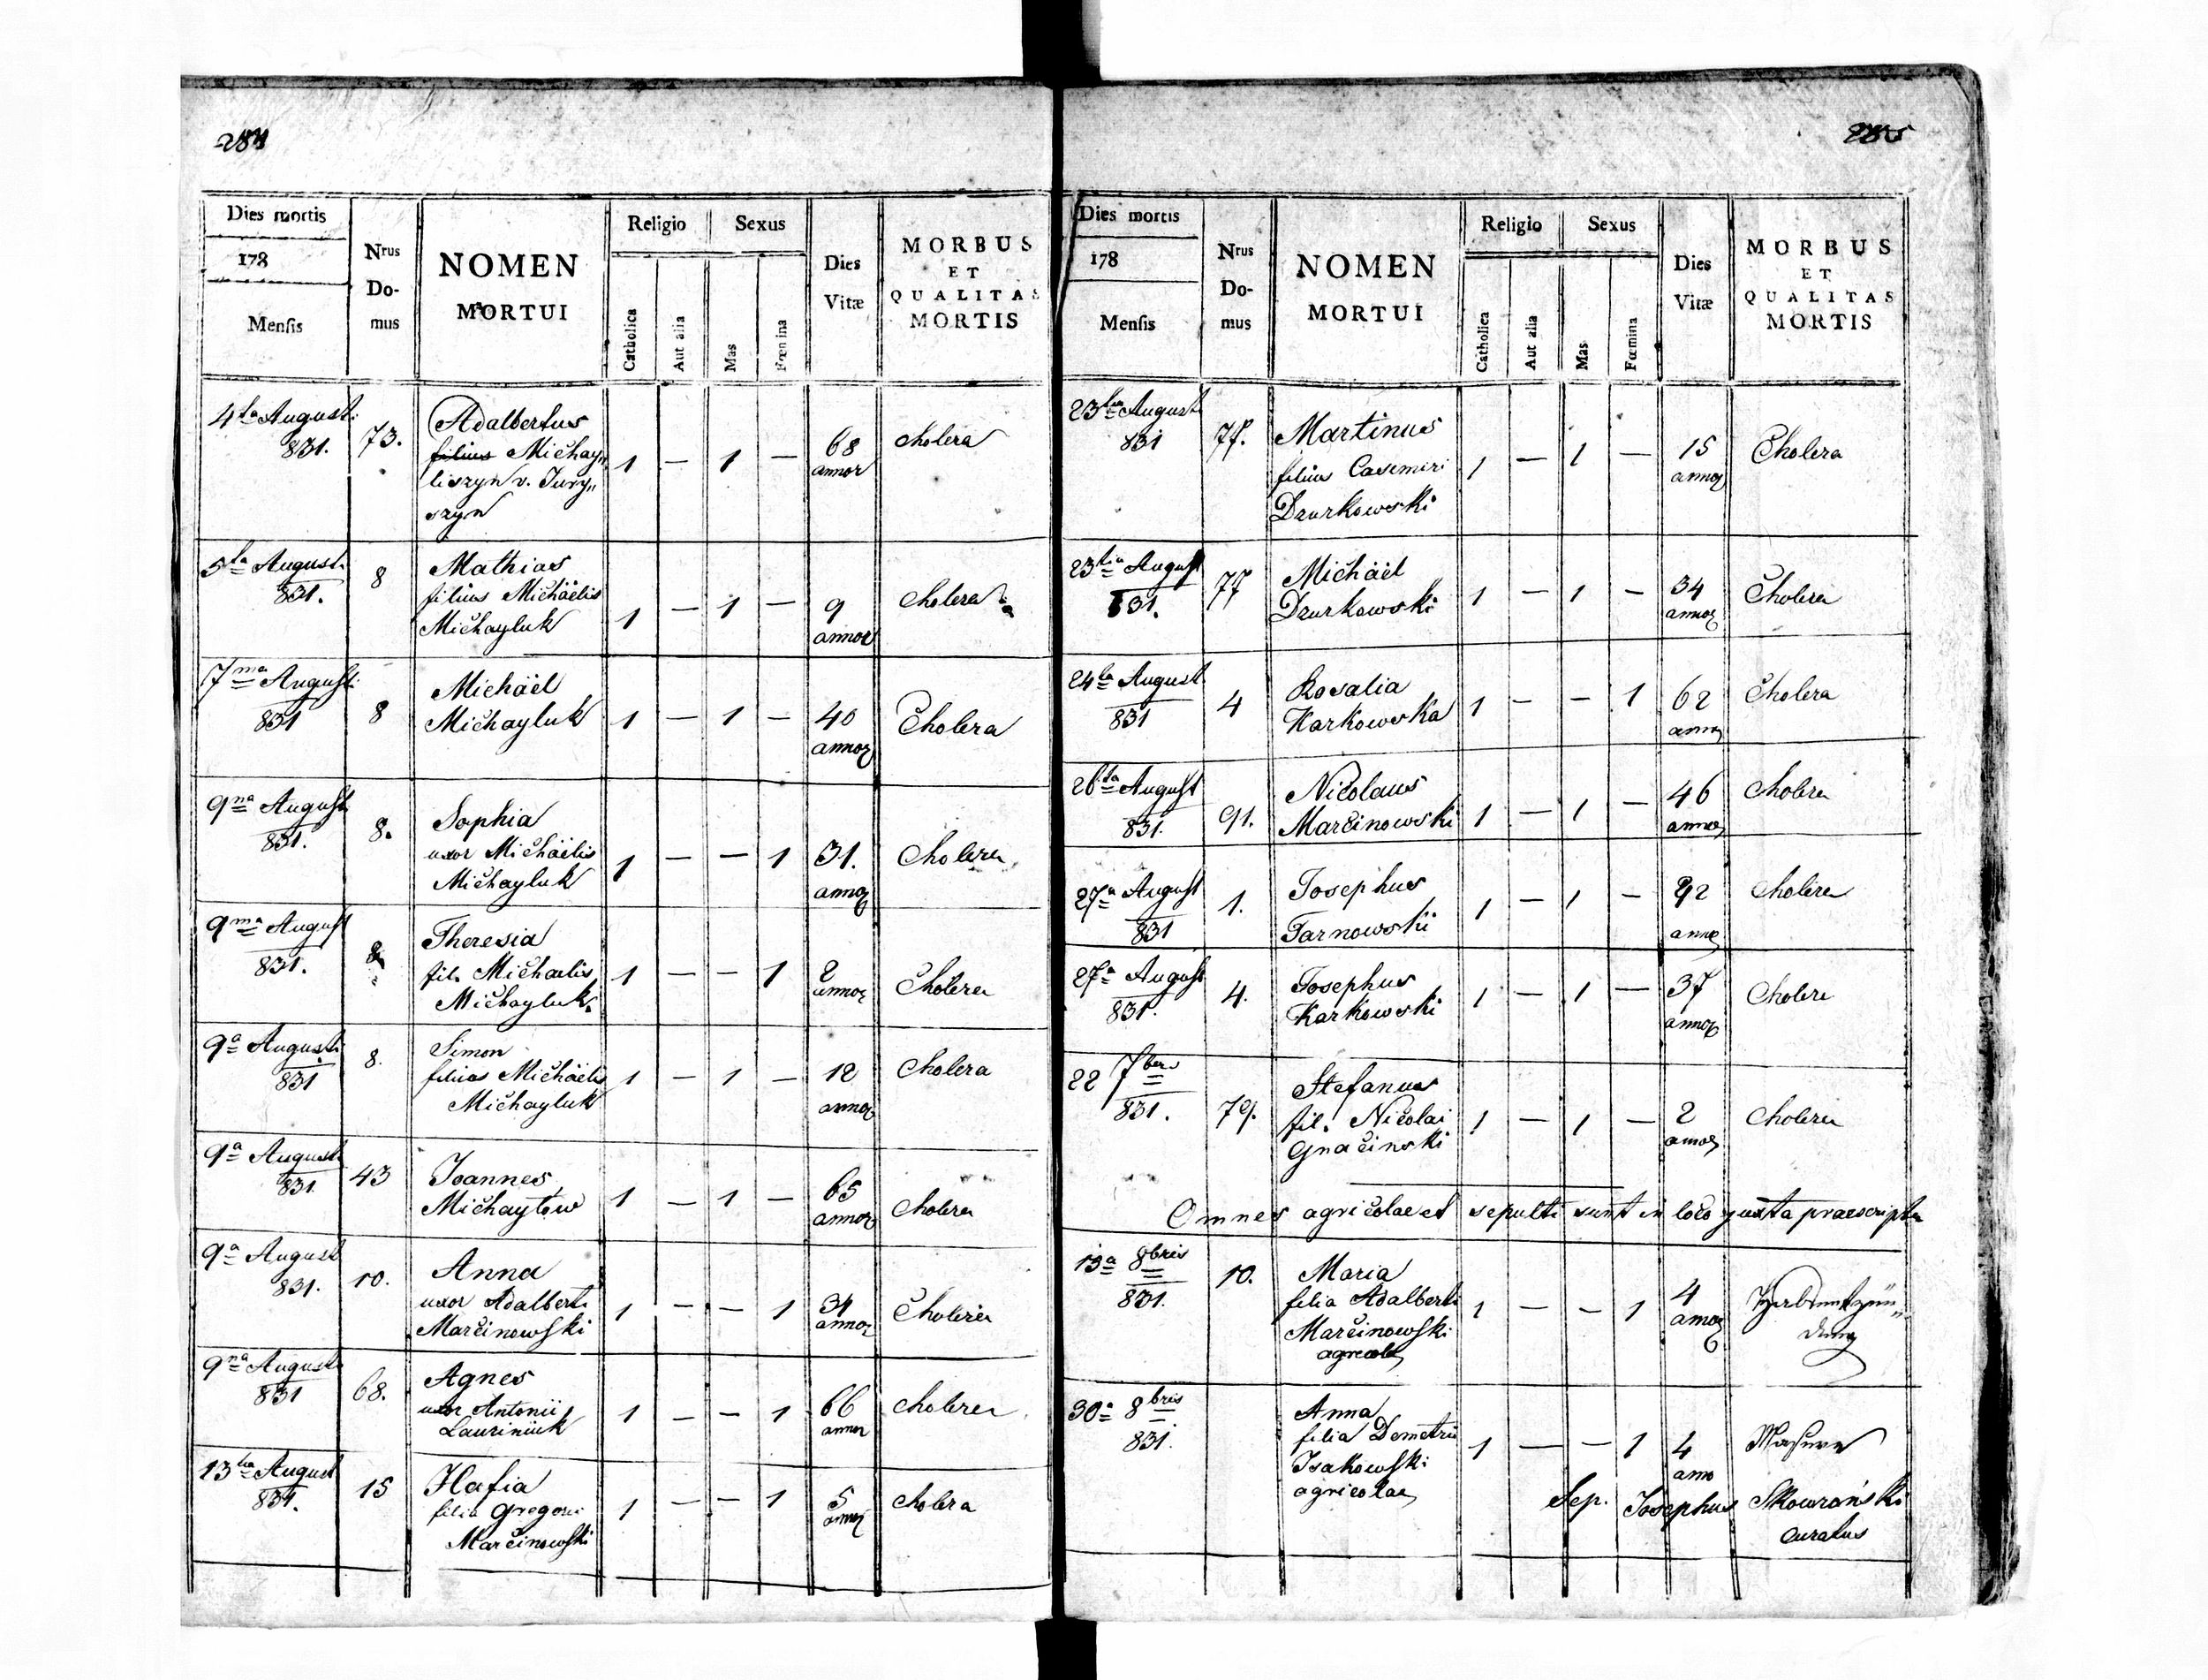 284
Dies mortis
178
Mensis
Nrus Do- mus
NOMEN
MORTUI
Religio
Catholica
Aut alia
Sexus
Mas
Fœmina
Dies
Vitæ
MORBUS
ET
QUALITAS
MORTIS
4ta August.
831.
73.
Adalbertus
filius Michay„
liszyn v. Jury„
szyn
1 — 1 —
68
annor
cholera
5ta August.
831.
8
Mathias
filius Michäelis
Michayluk
1 — 1 —
9
annor
cholera
7ma August.
831
8
Michäel
Michayluk
1 — 1 —
40
annor
Cholera
9na August
831.
8.
Sophia
uxor Michäelis
Michayluk
1 — — 1
31.
annor
Cholera
9ma August
831.
8
Theresia
fil. Michaelis
Michayluk.
1 — — 1
2
annor
Cholera
9a August
831
8.
Simon
filius Michäelis
Michayluk
1 — 1 —
12
annor
Cholera
9a August
831
43
Joannes
Michaytow
1 — 1 —
65
annor
Cholera
9a August
831.
10.
Anna
uxor Adalberti
Marcinowski
1 — — 1
34
annor
Cholera
9na August
831
68.
Agnes
uxor Antonii
1 — — 1
66
annor
cholera
13tia August
831.
15
Hafia
filia Gregorii
Marcinowski
1 — — 1
5
annor
cholera
285
Dies mortis
178
Mensis
Nrus Do- mus
NOMEN
MORTUI
Religio
Catholica
Aut alia
Sexus
Mas
Fœmina
Dies
Vitæ
MORBUS
ET
QUALITAS
MORTIS
23tia August
831
77.
Martinus
filius Casemiri
Dzurkowski
1 — 1 —
15
annor
Cholera
23tia August
831.
77
Michäel
Dzurkowski
1 — 1 —
34
annor
Cholera
24ta August
831
4
Rosalia
Karkowska
1 — — 1
62
annor
Cholera
26ta August
831.
91.
Nicolaus
Marcinowski
1 — 1 —
46
annor
Cholera
27a August
831
1.
Josephus
Tarnowski
1 — 1 —
annor
Cholera
27a August
831.
4.
Josephus
Karkowski
1 — 1 —
37
annor
Cholera
22 7bris
831.
79.
Stefanus
fil. Nicolai
Gnacinski
1 — 1 —
2
annor
Cholera
Omnes agricolae et sepulti sunt in loco juxta praescripta
13a 8bris
831.
10.
Maria
filia Adalberti
Marcinowski
agricolae
1 — — 1
4
annor
30a 8bris
831.
Anna
filia Demetrii
Isakowski
agricolae
1 — — 1
4
anno
Masern
Sep. Josephus Skowroński
Curatus